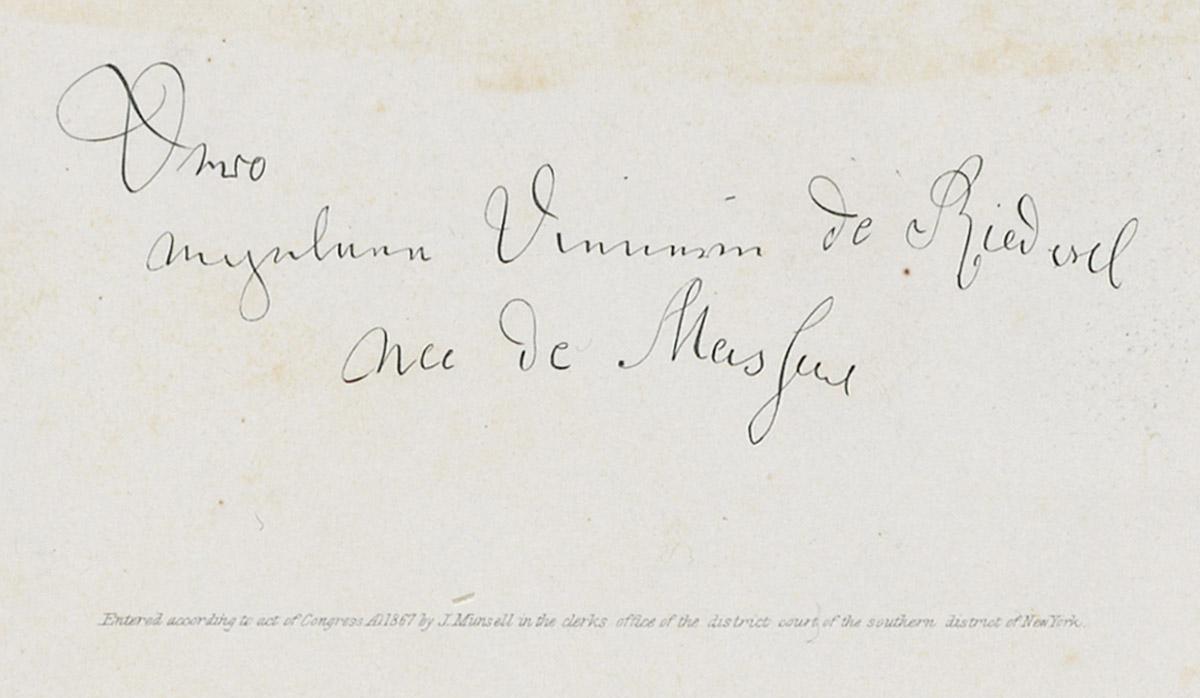 Dero
ergebene Dienerin de Riedesel
nee de Massow
Entered according to act of Congress AD 1867 by J. Munsell in the clerks office of the district court of the southern district of New York.